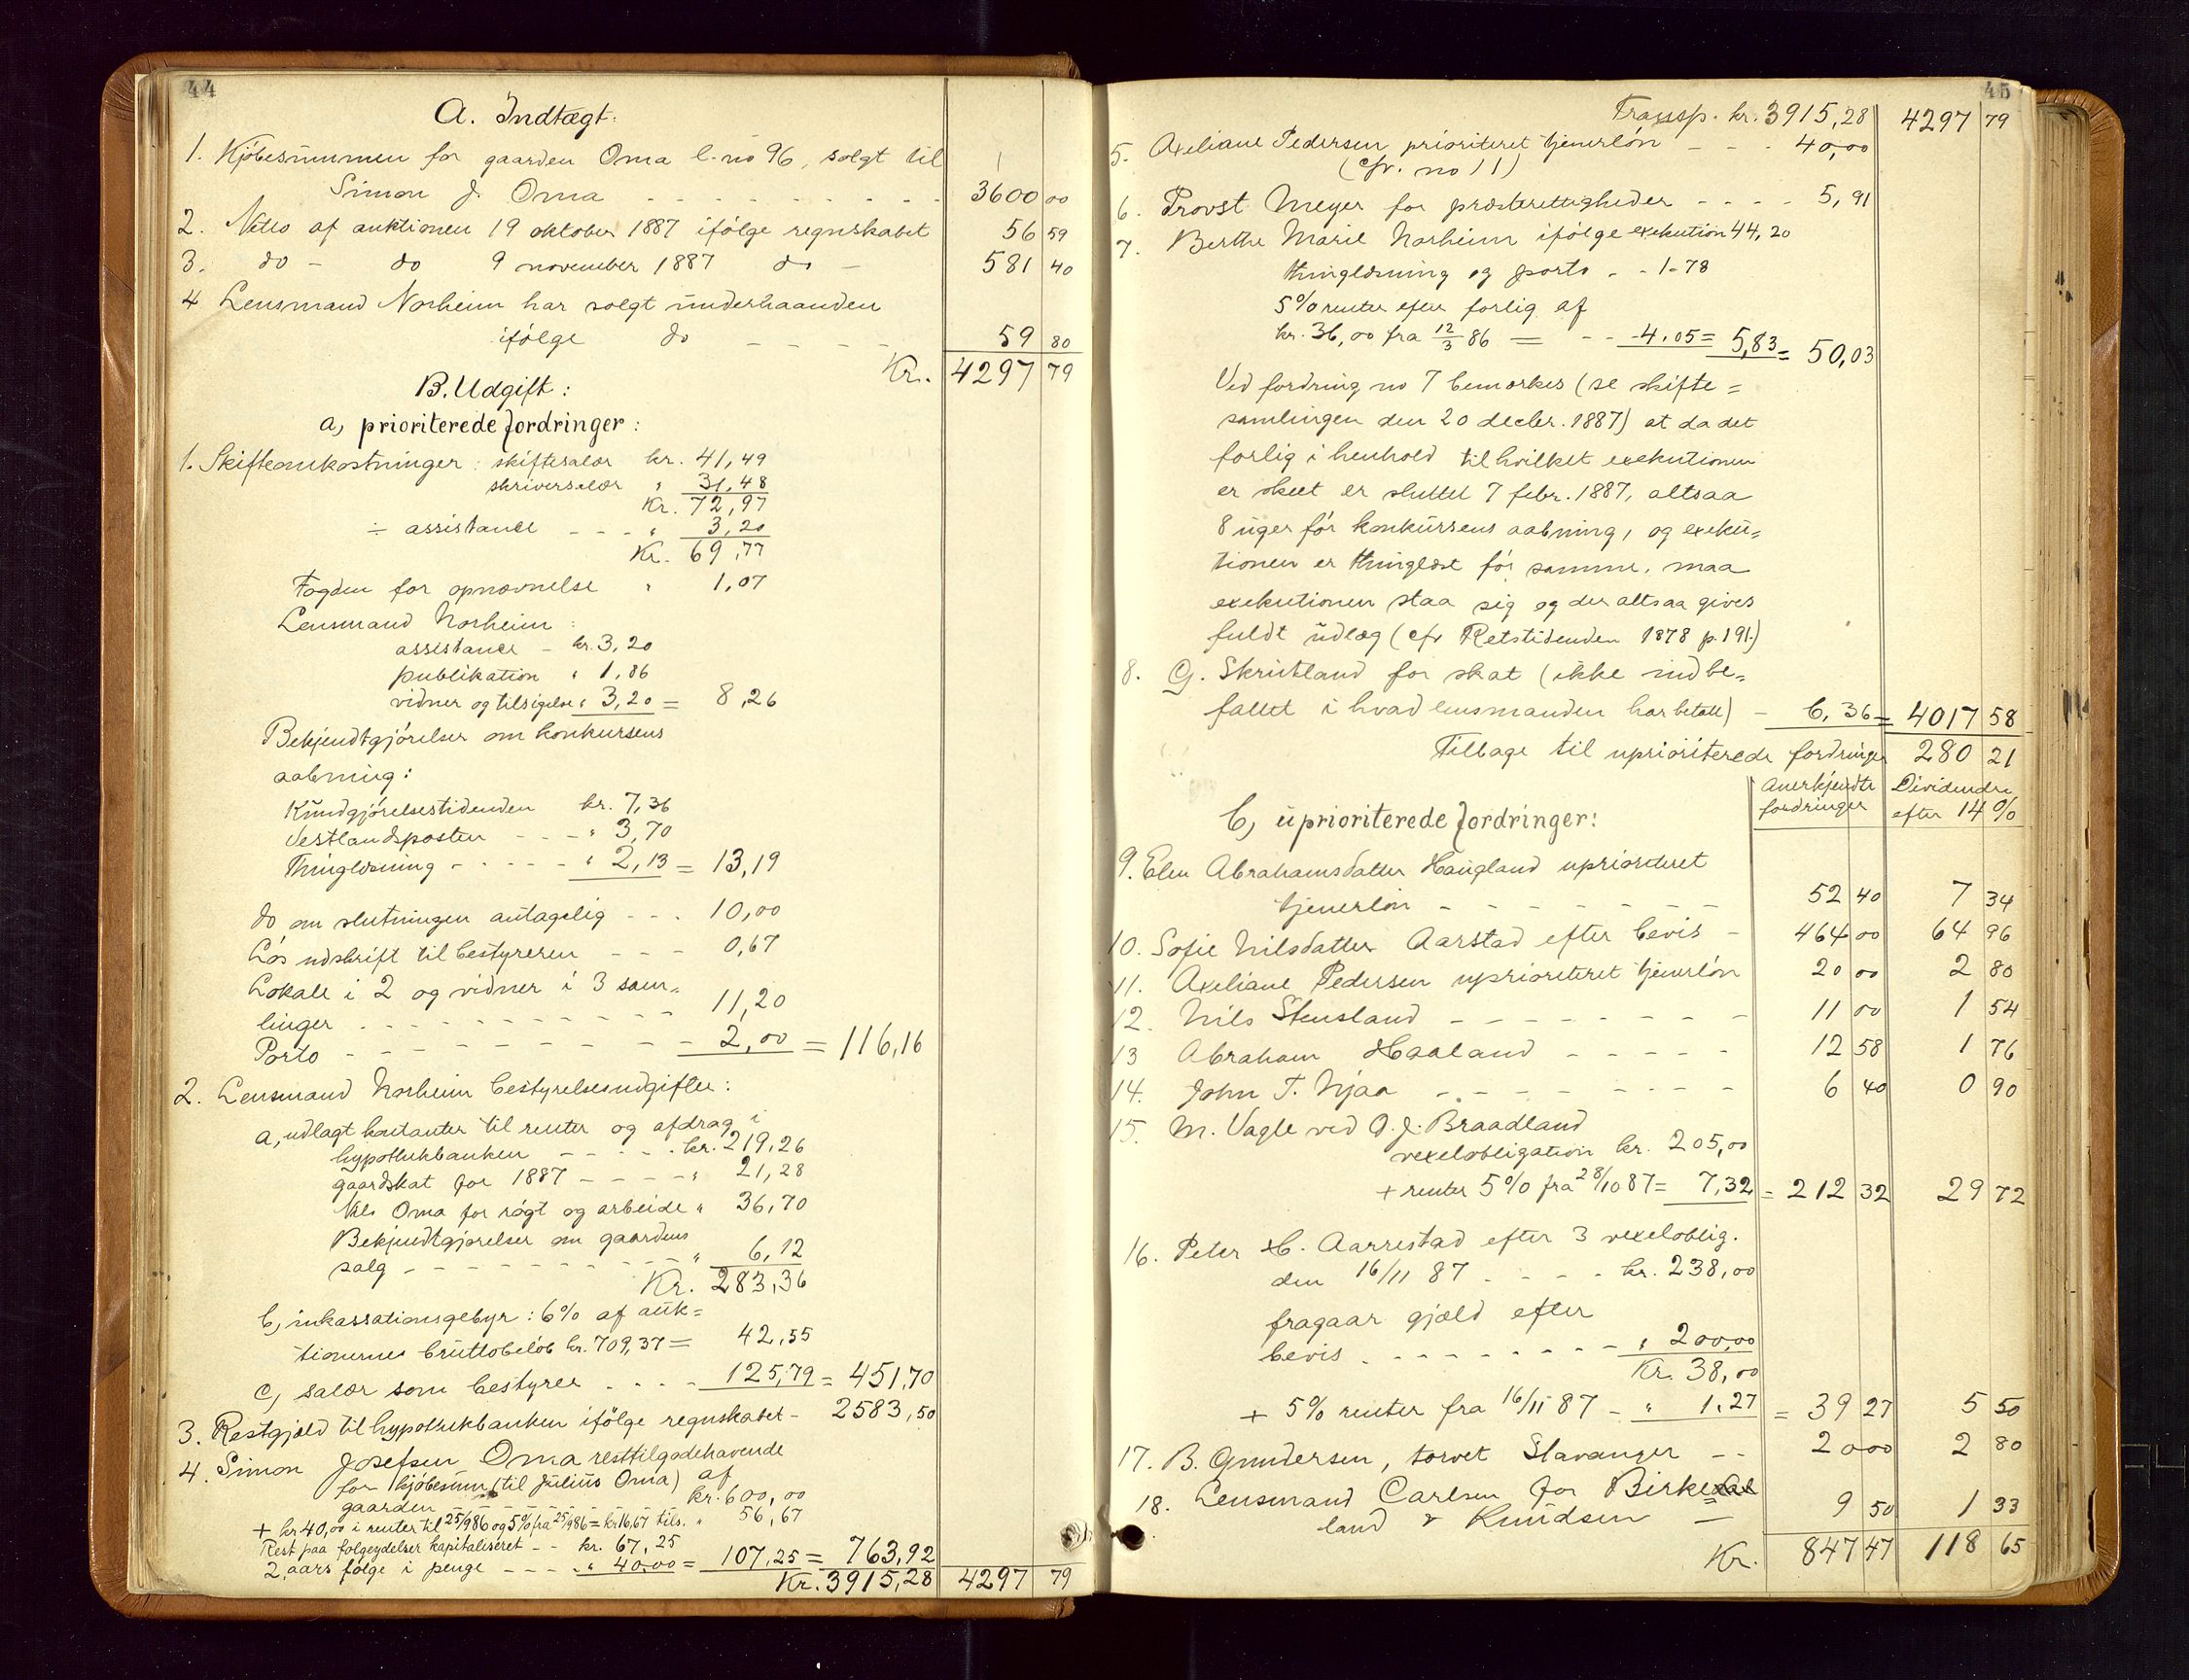 44
A. Indtægt:
1. Kjöbesummen for gaarden Oma l.no 96, solgt til
Simon J. Oma - - - - - - - - - 3600 00
2. Netto af auktionen 19 oktober 1887 ifölge regnskabet 56 59
3. do - do 9 november 1887 do - 581 40
4 Lensmand Norheim har solgt underhaanden
ifölge do - - - - 59 80
Kr. 4297 79
B. Udgift:
a, prioriterede fordringer:
1. Skifteomkostninger: skiftesalær kr. 41,49
skriversalær " 31,48
Kr. 72,97
÷ assistance - - - " 3,20
Kr. 69,77
Fogden for opnævnelse " 1,07
Lensmand Norheim:
assistance - kr. 3,20
publikation " 1,86
vidner og tilsigelse " 3,20 = 8,26
Bekjendtgjörelser om konkursens
aabning:
Kundgjörelsestidenden kr. 7,36
Vestlandsposten - - - " 3,70
Thinglæsning - - - - - " 2,13 = 13,19
do om slutningen antagelig - - . 10,00
Lös udskrift til bestyreren - - - 0,67
Lokale i 2 og vidner i 3 sam-
linger - - - - - - - - - - 11,20
Porto - - - - - - - - - - 2,00 = 116,16
2. Lensmand Norheim bestyrelsesudgifter:
a, udlagt kontanter til renter og afdrag i
hypothekbanken - - - - . kr. 219,26
gaardskat for 1887 - - - - " 21,28
Nils Oma for rögt og arbeide " 36,70
Bekjendtgjörelser om gaardens
salg - - - - - - - - - - " 6,12
Kr. 283,36
b, inkassationsgebyr: 6% af auk=
tionernes bruttobelöb kr. 709,37 = 42,55
c, salær som bestyrer . - - - 125,79 = 451,70
3. Restgjæld til hypothekbanken ifölge regnskabet - 2583,50
4. Simon Josefsen Oma resttilgodehavende
for kjöbesum (til Julius Oma) af
gaarden - - - - - - - - - kr. 600,00
+ kr 40,00 i renter til 25/9 86 og 5% fra 25/9 86 = kr 16,67 tils. " 56,67
Rest paa følgeydelser kapitaliseret - - kr. 67,25
2 aars følge i penge - - - . " 40,00 = 107,25 = 763,92
Kr. 3915,28 4297 79
45
Transp. kr. 3915,28 4297 79
5. Axeliane Pedersen prioriteret tjenerlön - - - 40,00
(cfr. no 11)
6. Provst Meyer for præsterettigheder - - - - 5,91
7. Berthe Marie Norheim ifölge exekution 44,20
thinglæsning og porto - - 1-78
5% renter efter forlig af
kr. 36,00 fra 12/3 86 = - - 4.05 = 5,83 = 50,03
Ved fordring no 7 bemærkes (se skifte=
samlingen den 20 decbr. 1887) at da det
forlig i henhold til hvilket exekutionen
er skeet er sluttet 7 febr. 1887, altsaa
8 uger før konkursens aabning, og exeku=
tionen er thinglæst før samme, maa
exekutionen staa sig og der altsaa gives
fuldt udlæg (cfr Retstidenden 1878 p. 191.)
8. G. Skrudland for skat (ikke indbe=
fattet i hvad lensmanden har betalt) - 6,36 = 4017 58
Tilbage til uprioriterede fordringer 280 21
Anerkjendte fordringer Dividende efter 14%
b, uprioriterede fordringer:
9. Elen Abrahamsdatter Haugland uprioriteret
tjenerlön - - - - - - - 52 40 7 34
10. Sofie Nilsdatter Aarstad efter bevis - 464 00 64 96
11. Axeliane Pedersen uprioriteret tjenerlön 20 00 2 80
12. Nils Stensland - - - - - - - - 11 00 1 54
13 Abraham Haaland - - - - - 12 58 1 76
14. John T. Njaa - - - - - - - - 6 40 0 90
15. M. Vagle ved O. J. Braadland
vexelobligation kr. 205,00
+ renter 5% fra 28/10 87 = 7,32 = 212 32 29 72
16. Peter H. Aarrestad efter 3 vexeloblig.
den 16/11 87 - - - - kr. 238,00
fragaar gjæld efter
bevis . - - - - - - - - " 200,00
Kr. 38,00
+ 5% renter fra 16/11 87 - " 1.27 = 39 27 5 50
17. B. Gundersen, torvet Stavanger - - 20 00 2 80
18. Lensmand Carlsen for Birke
land & Knudsen - 9 50 1 33
Kr. 847 47 118 65